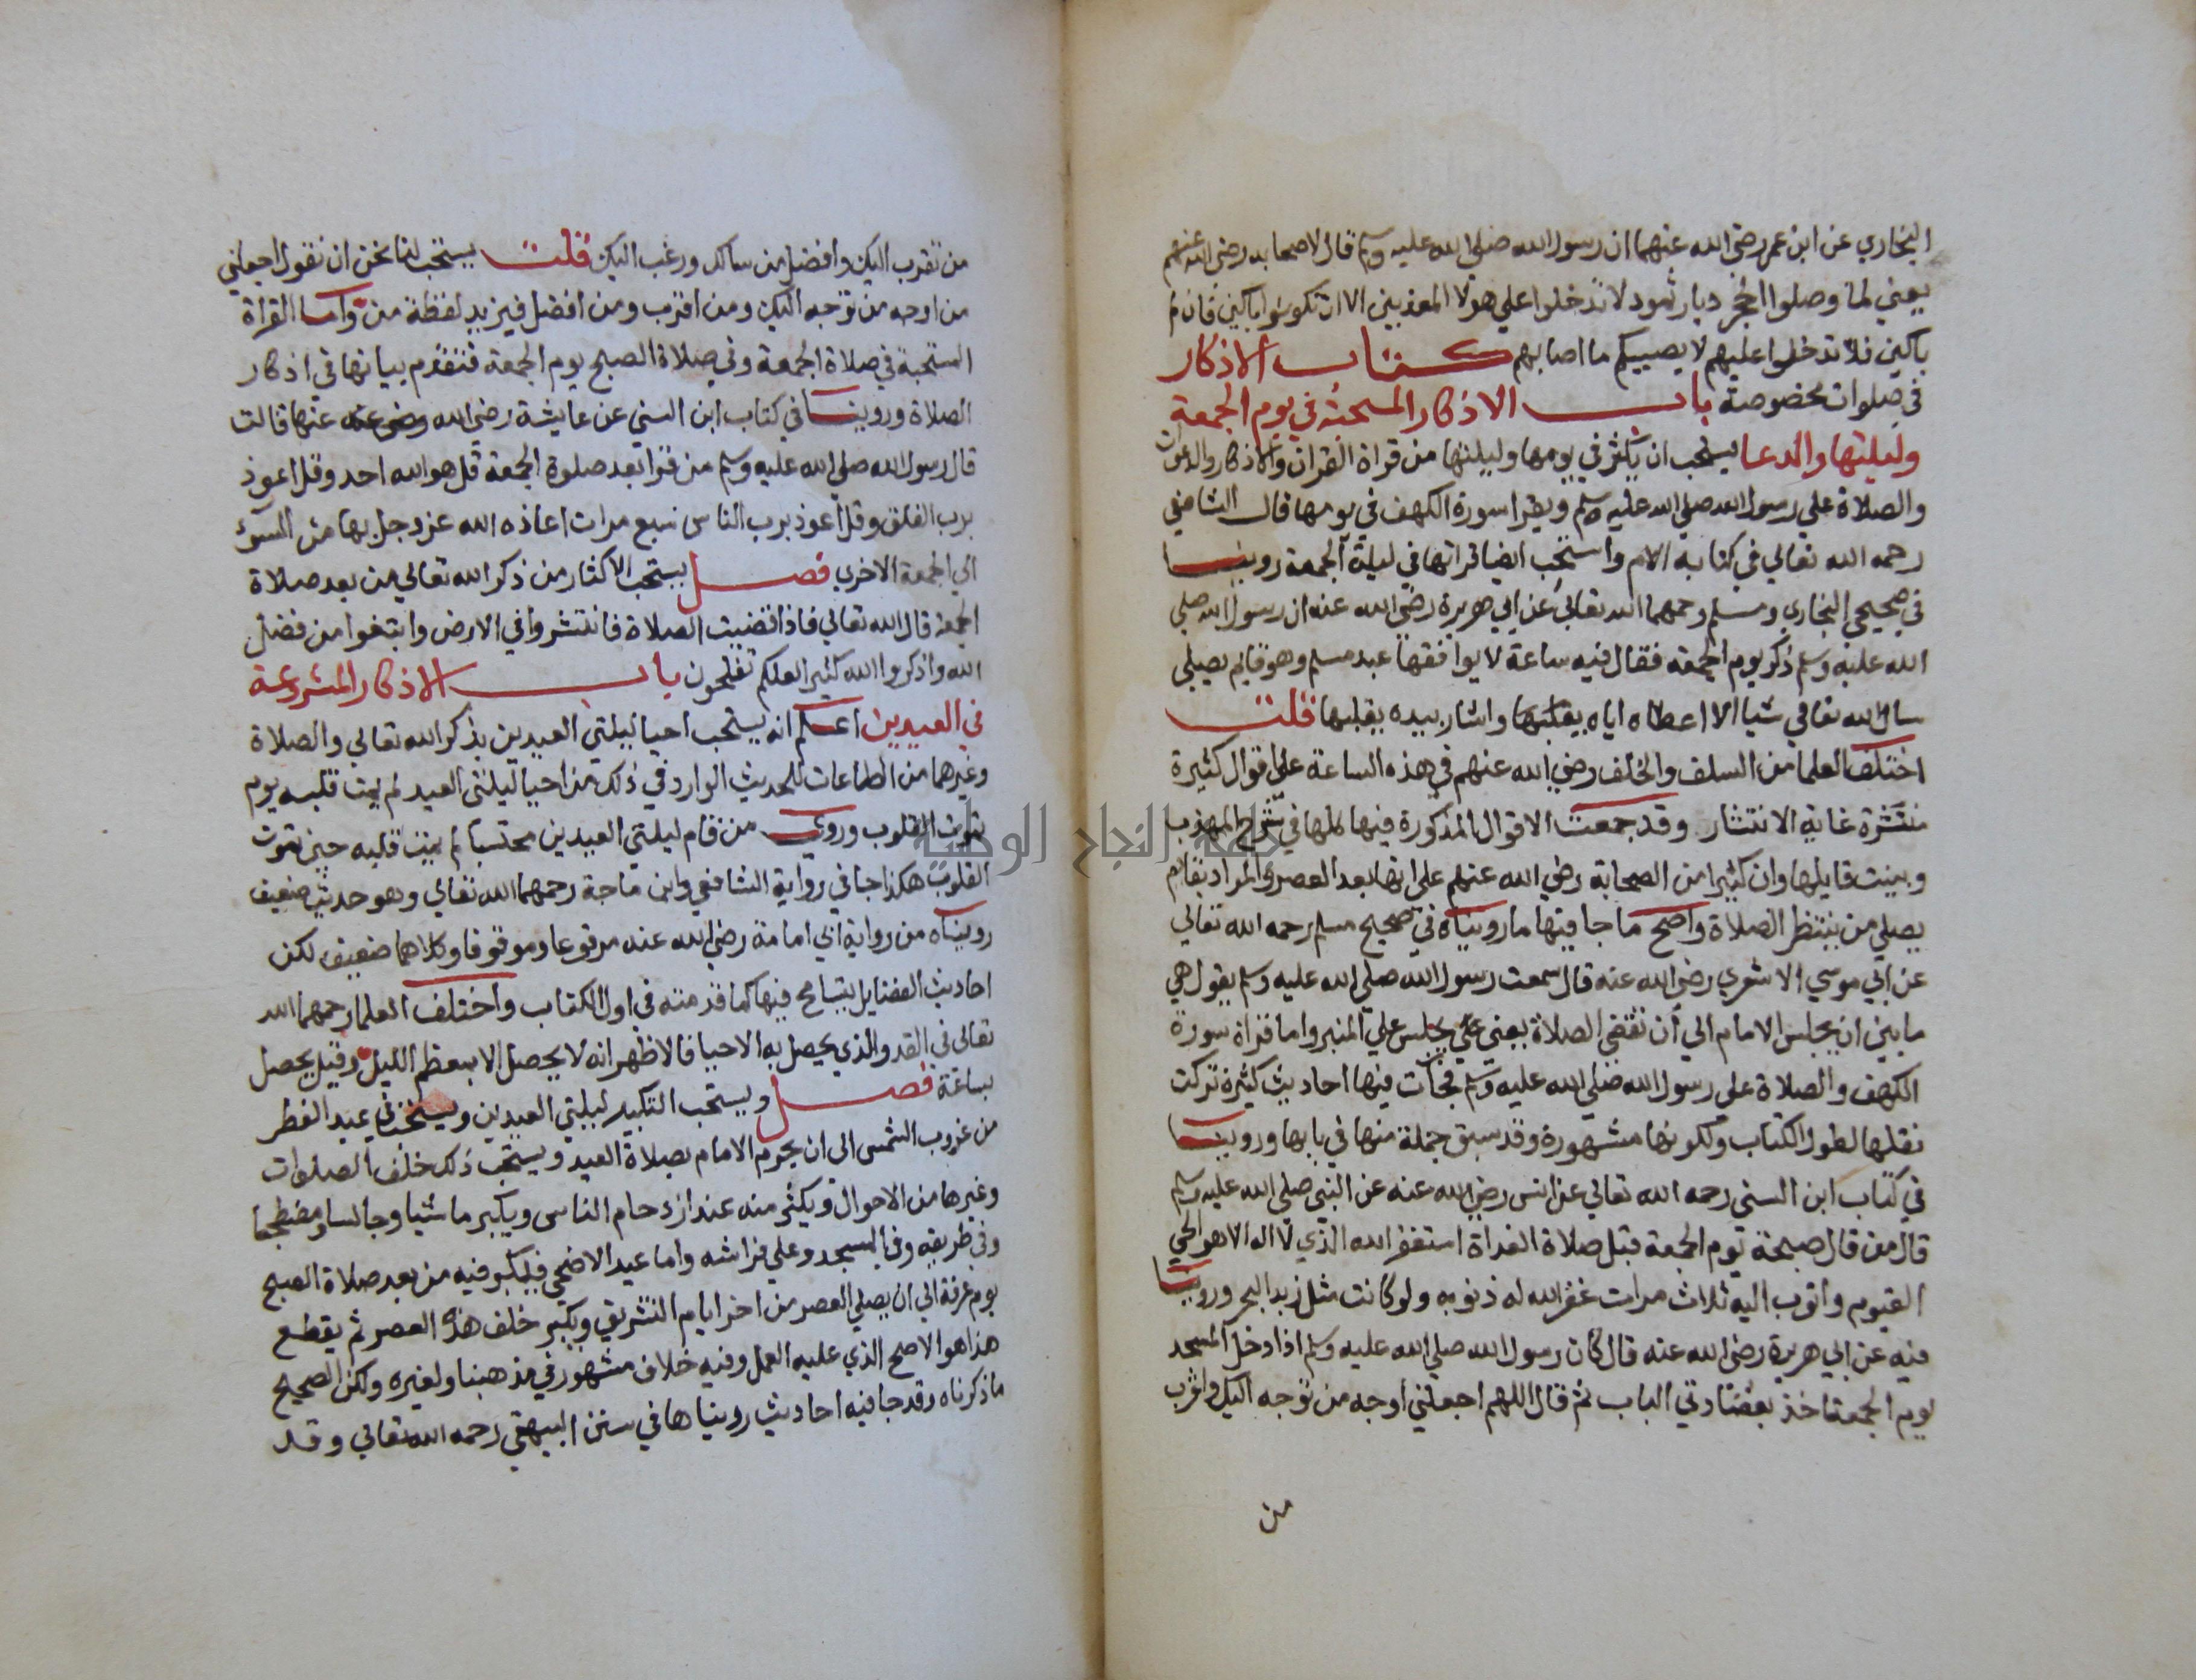 البخاري عن ابن عمر رضي الله عنهما ان رسول الله صلي الله عليه وسلم قال لاصحابه رضي الله عنهم
يعني لما وصلوا الحجر ديار ثمود لا تدخلوا علي هولا المعذبين الا ان تكونوا باكين فان لم
باكين فلا تدخلوا عليهم لا يصيبكم ما اصابهم كتاب الاذكار
في صلوات مخصوصة باب الاذكار المستحبة في يوم الجمعة
وليلتها والدعا يستحب ان يكثر في يومها وليلتها من قراة القران والاذكار والدعوات
والصلاة علي رسول الله صلي الله عليه وسلم ويقرا سورة الكهف في يومها قال الشافعي
رحمه الله تعالي في كتابه الام واستحب ايضا قراتها في ليلة الجمعة روينا
في صحيحي البخاري ومسلم رحمهما الله تعالي عن ابي هريرة رضي الله عنه ان رسول الله صلي
الله عليه وسلم ذكر يوم الجمعة فقال فيه ساعة لا يوافقها عبد مسلم وهو قايم يصلي
سال الله تعالي شيا الا اعطاه اياه يقللها واشار بيده يقللها قلت
اختلف العلما من السلف والخلف رضي الله عنهم في هذه الساعة علي اقوال كثيرة
منتشرة غاية الانتشار وقد جمعت الاقوال المذكورة فيها كلها في شرح المهذب
وبينت قايلها وان كثيرا من الصحابة رضي الله عنهم علي انها بعد العصر والمراد بقايم
يصلي من ينتظر الصلاة واصح ما جا فيها ما رويناه في صحيح مسلم رحمه الله تعالي
عن ابي موسي الاشعري رضي الله عنه قال سمعت رسول الله صلي الله عليه وسلم يقول هي
ما بين ان يجلس الامام الي أن تقضي الصلاة يعني علي يجلس علي المنبر واما قراة سورة
الكهف والصلاة علي رسول الله صلي الله عليه وسلم فجات فيها احاديث كثيرة تركت
نقلها لطول الكتاب ولكونها مشهورة وقد سبق جملة منها في بابها وروينا
في كتاب ابن السني رحمه الله تعالي عن انس رضي الله عنه عن النبي صلي الله عليه وسلم
قال من قال صبيحة يوم الجمعة قبل صلاة الغداة استغفر الله الذي لا اله الا هو الحي
القيوم واتوب اليه ثلاث مرات غفر الله له ذنوبه ولو كانت مثل زبد البحر وروينا
فيه عن ابي هريرة رضي الله عنه قال كان رسول الله صلي الله عليه وسلم اذا دخل المسجد
يوم الجمعة اخذ بعضادتي الباب ثم قال اللهم اجعلني اوجه من توجه اليك واقرب
من
من تقرب اليك وافضل من سالك ورغب اليك قلت يستحب لنا نحن ان نقول اجعلني
من اوجه من توجه اليك ومن اقرب ومن افضل فيزيد لفظة من واما القراة
المستحبة في صلاة الجمعة وفي صلاة الصبح يوم الجمعة فتقدم بيانها في اذكار
الصلاة وروينا في كتاب ابن السني عن عايشة رضي الله عنها قالت
قال رسول الله صلي الله عليه وسلم من قرا بعد صلوة الجمعة قل هو الله احد وقل اعوذ
برب الفلق وقل اعوذ برب الناس سبع مرات اعاذه الله عز وجل بها من السوء
الي الجمعة الاخري فصل يستحب الاكثار من ذكر الله تعالي من بعد صلاة
الجمعة قال الله تعالي فاذا قضيت الصلاة فانتشروا في الارض وابتغوا من فضل
الله واذكروا الله كثيرا لعلكم تفلحون باب الاذكار المشروعة
في العيدين اعلم انه يستحب احيا ليلتي العيدين بذكر الله تعالي والصلاة
وغيرهما من الطاعات للحديث الوارد في ذلك من احيا ليلتي العيد لم يمت قلبه يوم
تموت القلوب وروي من قام ليلتي العيدين محتسبا لم يمت قلبه حين تموت
القلوب هكذا جا في رواية الشافعي وابن ماجة رحمهما الله تعالي وهو حديث ضعيف
رويناه من رواية ابي امامة رضي الله عنه مرفوعا وموقوفا وكلاهما ضعيف لكن
احاديث الفضايل يتسامح فيها كما قدمته في اول الكتاب واختلف العلما رحمهما الله
تعالي في القدر الذي يحصل به الاحيا فالاظهر انه لا يحصل الا بمعظم الليل وقيل يحصل
بساعة فصل ويستحب التكبير ليلتي العيدين ويستحب في عيد الفطر
من غروب الشمس الي ان يحرم الامام بصلاة العيد ويستحب ذلك خلف الصلوات
وغيرها من الاحوال ويكثر منه عند ازدحام الناس ويكبر ماشيا وجالسا ومضطجعا
وفي طريقه وفي المسجد وعلي فراشه واما عيد الاضحي فيكبر فيه من بعد صلاة الصبح
يوم عرفة الي ان يصلي العصر من اخر ايام التشريق ويكبر خلف هذه العصر ثم يقطع
هذا هو الاصح الذي عليه العمل وفيه خلاف مشهور في مذهبنا ولغيره ولكن الصحيح
ما ذكرناه وقد جا فيه احاديث رويناها في سنن البيهقي رحمه الله تعالي وقد
جامعة النجاح الوطنية